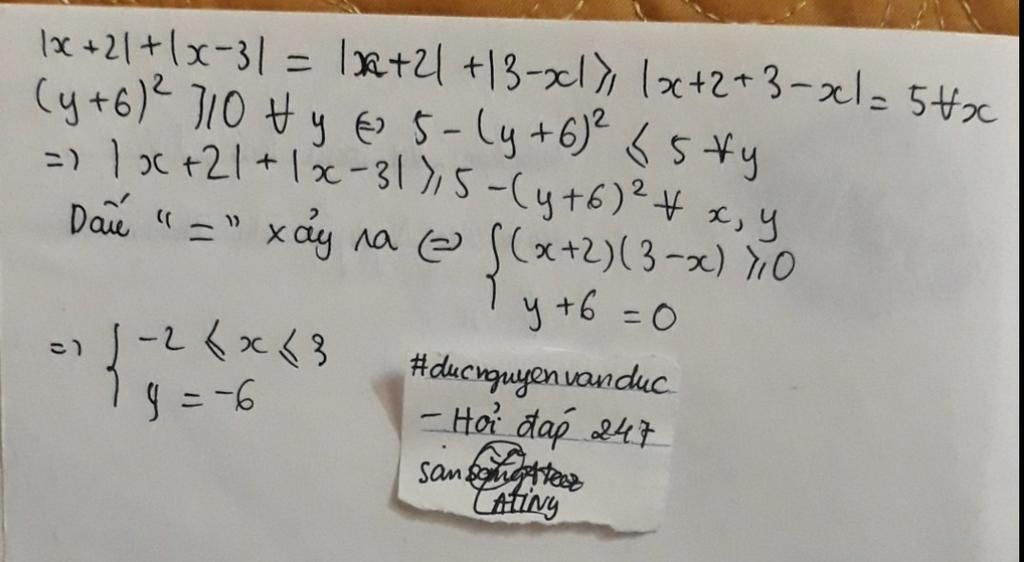 |x+2|+|x-3| = |x+2| +|3-x| ⩾ |x+2+3-x| = 5 ∀x
(y+6)² ⩾ 0 ∀ y ⇔ 5-(y+6)² ⩽ 5 ∀y
=> |x+2|+|x-3| ⩾ 5-(y+6)² ∀ x, y
Dấu "=" xảy ra ⇔ { (x+2)(3-x) ⩾ 0
y+6 = 0
=> { -2 ⩽ x ⩽ 3
y = -6
#ducnguyenvanduc
- Hỏi đáp 247
sàn
ATINY